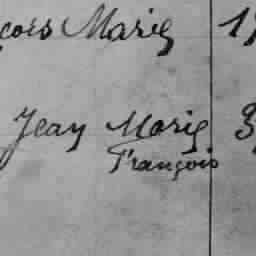 çois Marie 1
Jean Marie 3
François